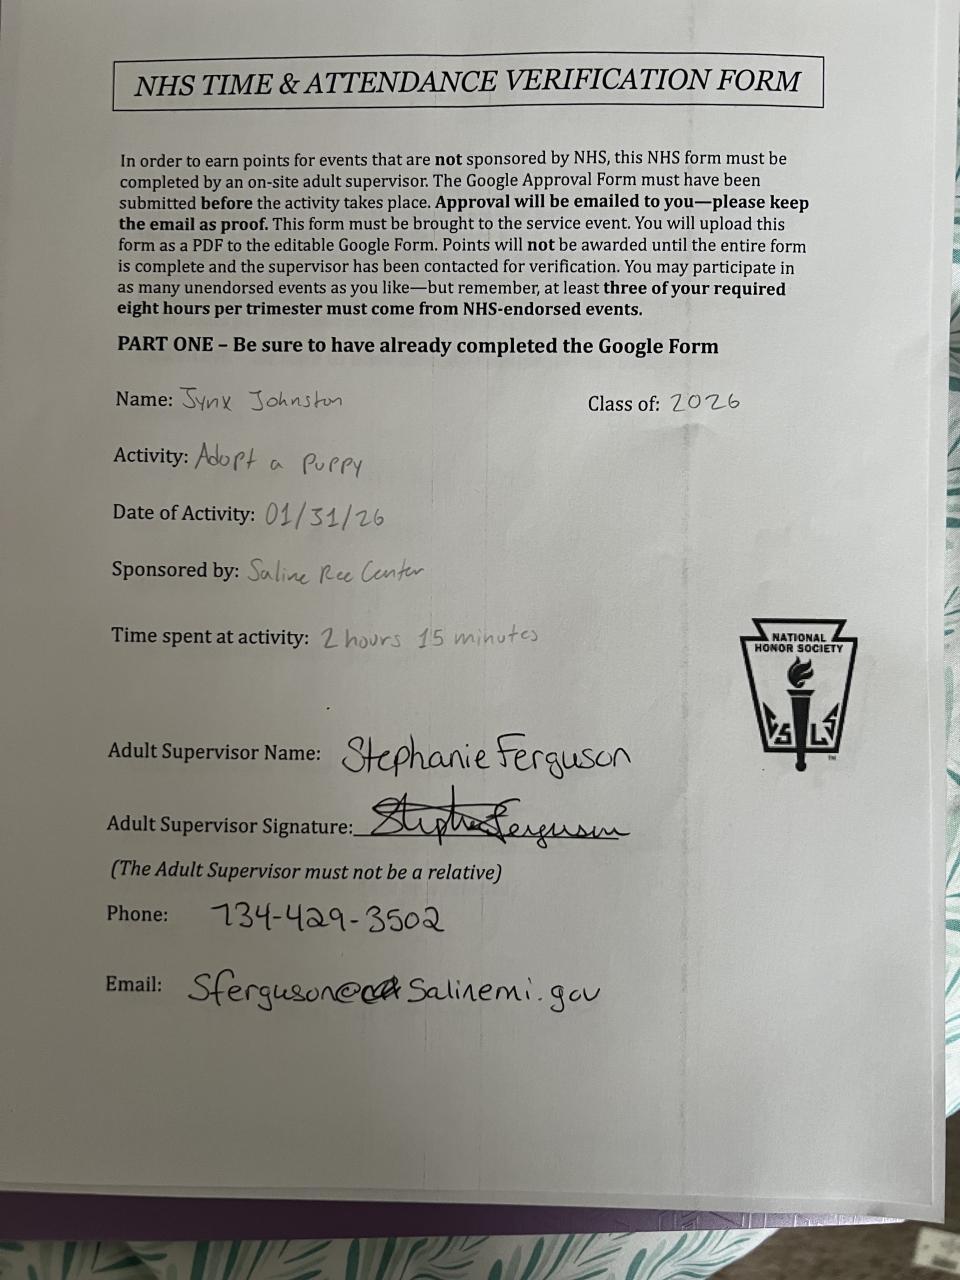 NHS TIME & ATTENDANCE VERIFICATION FORM
In order to earn points for events that are not sponsored by NHS, this NHS form must be
completed by an on-site adult supervisor. The Google Approval Form must have been
submitted before the activity takes place. Approval will be emailed to you—please keep
the email as proof. This form must be brought to the service event. You will upload this
form as a PDF to the editable Google Form. Points will not be awarded until the entire form
is complete and the supervisor has been contacted for verification. You may participate in
as many unendorsed events as you like—but remember, at least three of your required
eight hours per trimester must come from NHS-endorsed events.
PART ONE – Be sure to have already completed the Google Form
Name: Jynx Johnston Class of: 2026
Activity: Adopt a puppy
Date of Activity: 01/31/26
Sponsored by: Saline Rec Center
Time spent at activity: 2 hours 15 minutes
NATIONAL
HONOR SOCIETY
S L S
TM
Adult Supervisor Name: Stephanie Ferguson
Adult Supervisor Signature: Stephanie Ferguson
(The Adult Supervisor must not be a relative)
Phone: 734-429-3502
Email: Sferguson@Salinemi.gov